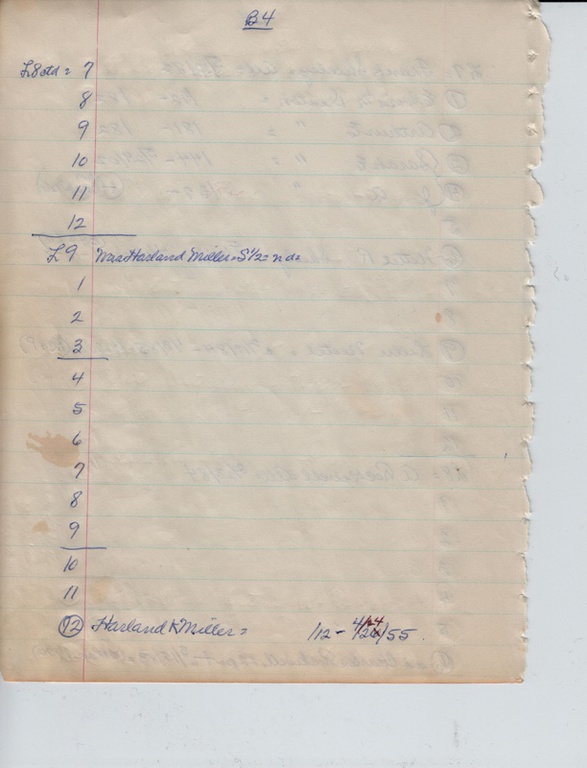 B4
L8 ctd = 7
8
9
10
11
12
L9 Was Harland Miller = S 1/2 = nd =
1
2
3
4
5
6
7
8
9
10
11
12 Harland K Miller = /12 - 4/24/55.